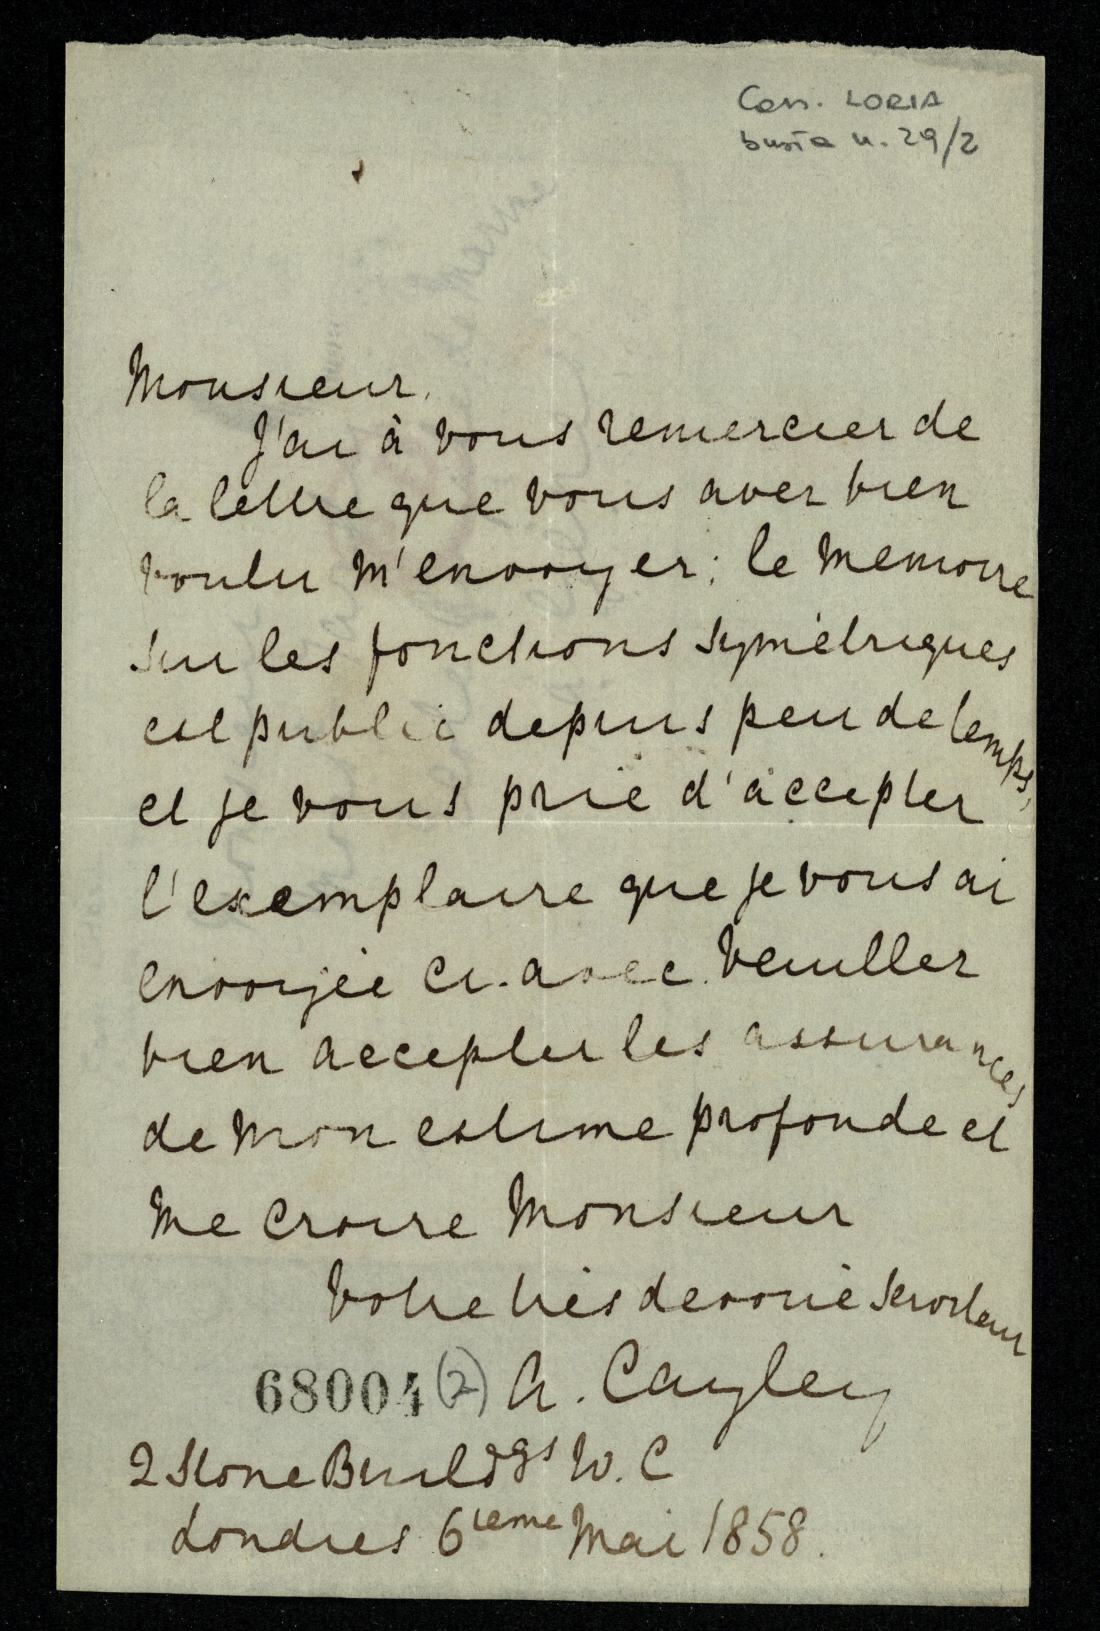 Corr. LORIA
busta n. 29/2
Monsieur.
J'ai à vous remercier de
la lettre que vous avez bien
voulu m'envoyer; le memoire
sur les fonctions symétriques
est publié depuis peu de temps,
et je vous prie d'accepter
l'exemplaire que je vous ai
envoyée ci-avec. Veuillez
bien accepter les assurances
de mon estime profonde et
me croire Monsieur
Votre très devoué serviteur
68004 (2) A. Cayley
2 Stone Buildgs W. C
Londres 6ieme Mai 1858.